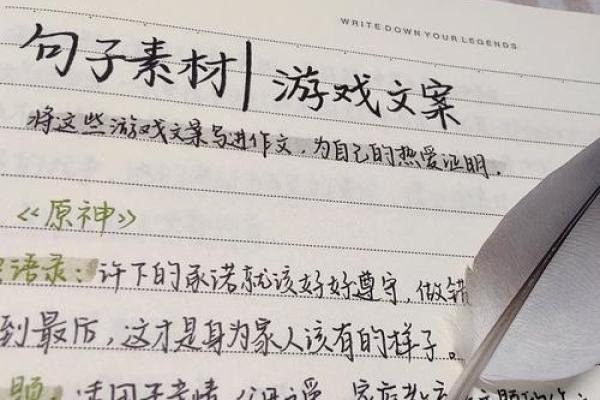 WRITE DOWN YOUR LEGENDS
句子素材|游戏文案
将这些游戏文案写进作文,为自己的热爱证明.
《原神》
语录:许下的承诺就该好好尊守,做错
到最后,这才是身为家人该有的样子。
题:适用于亲情/